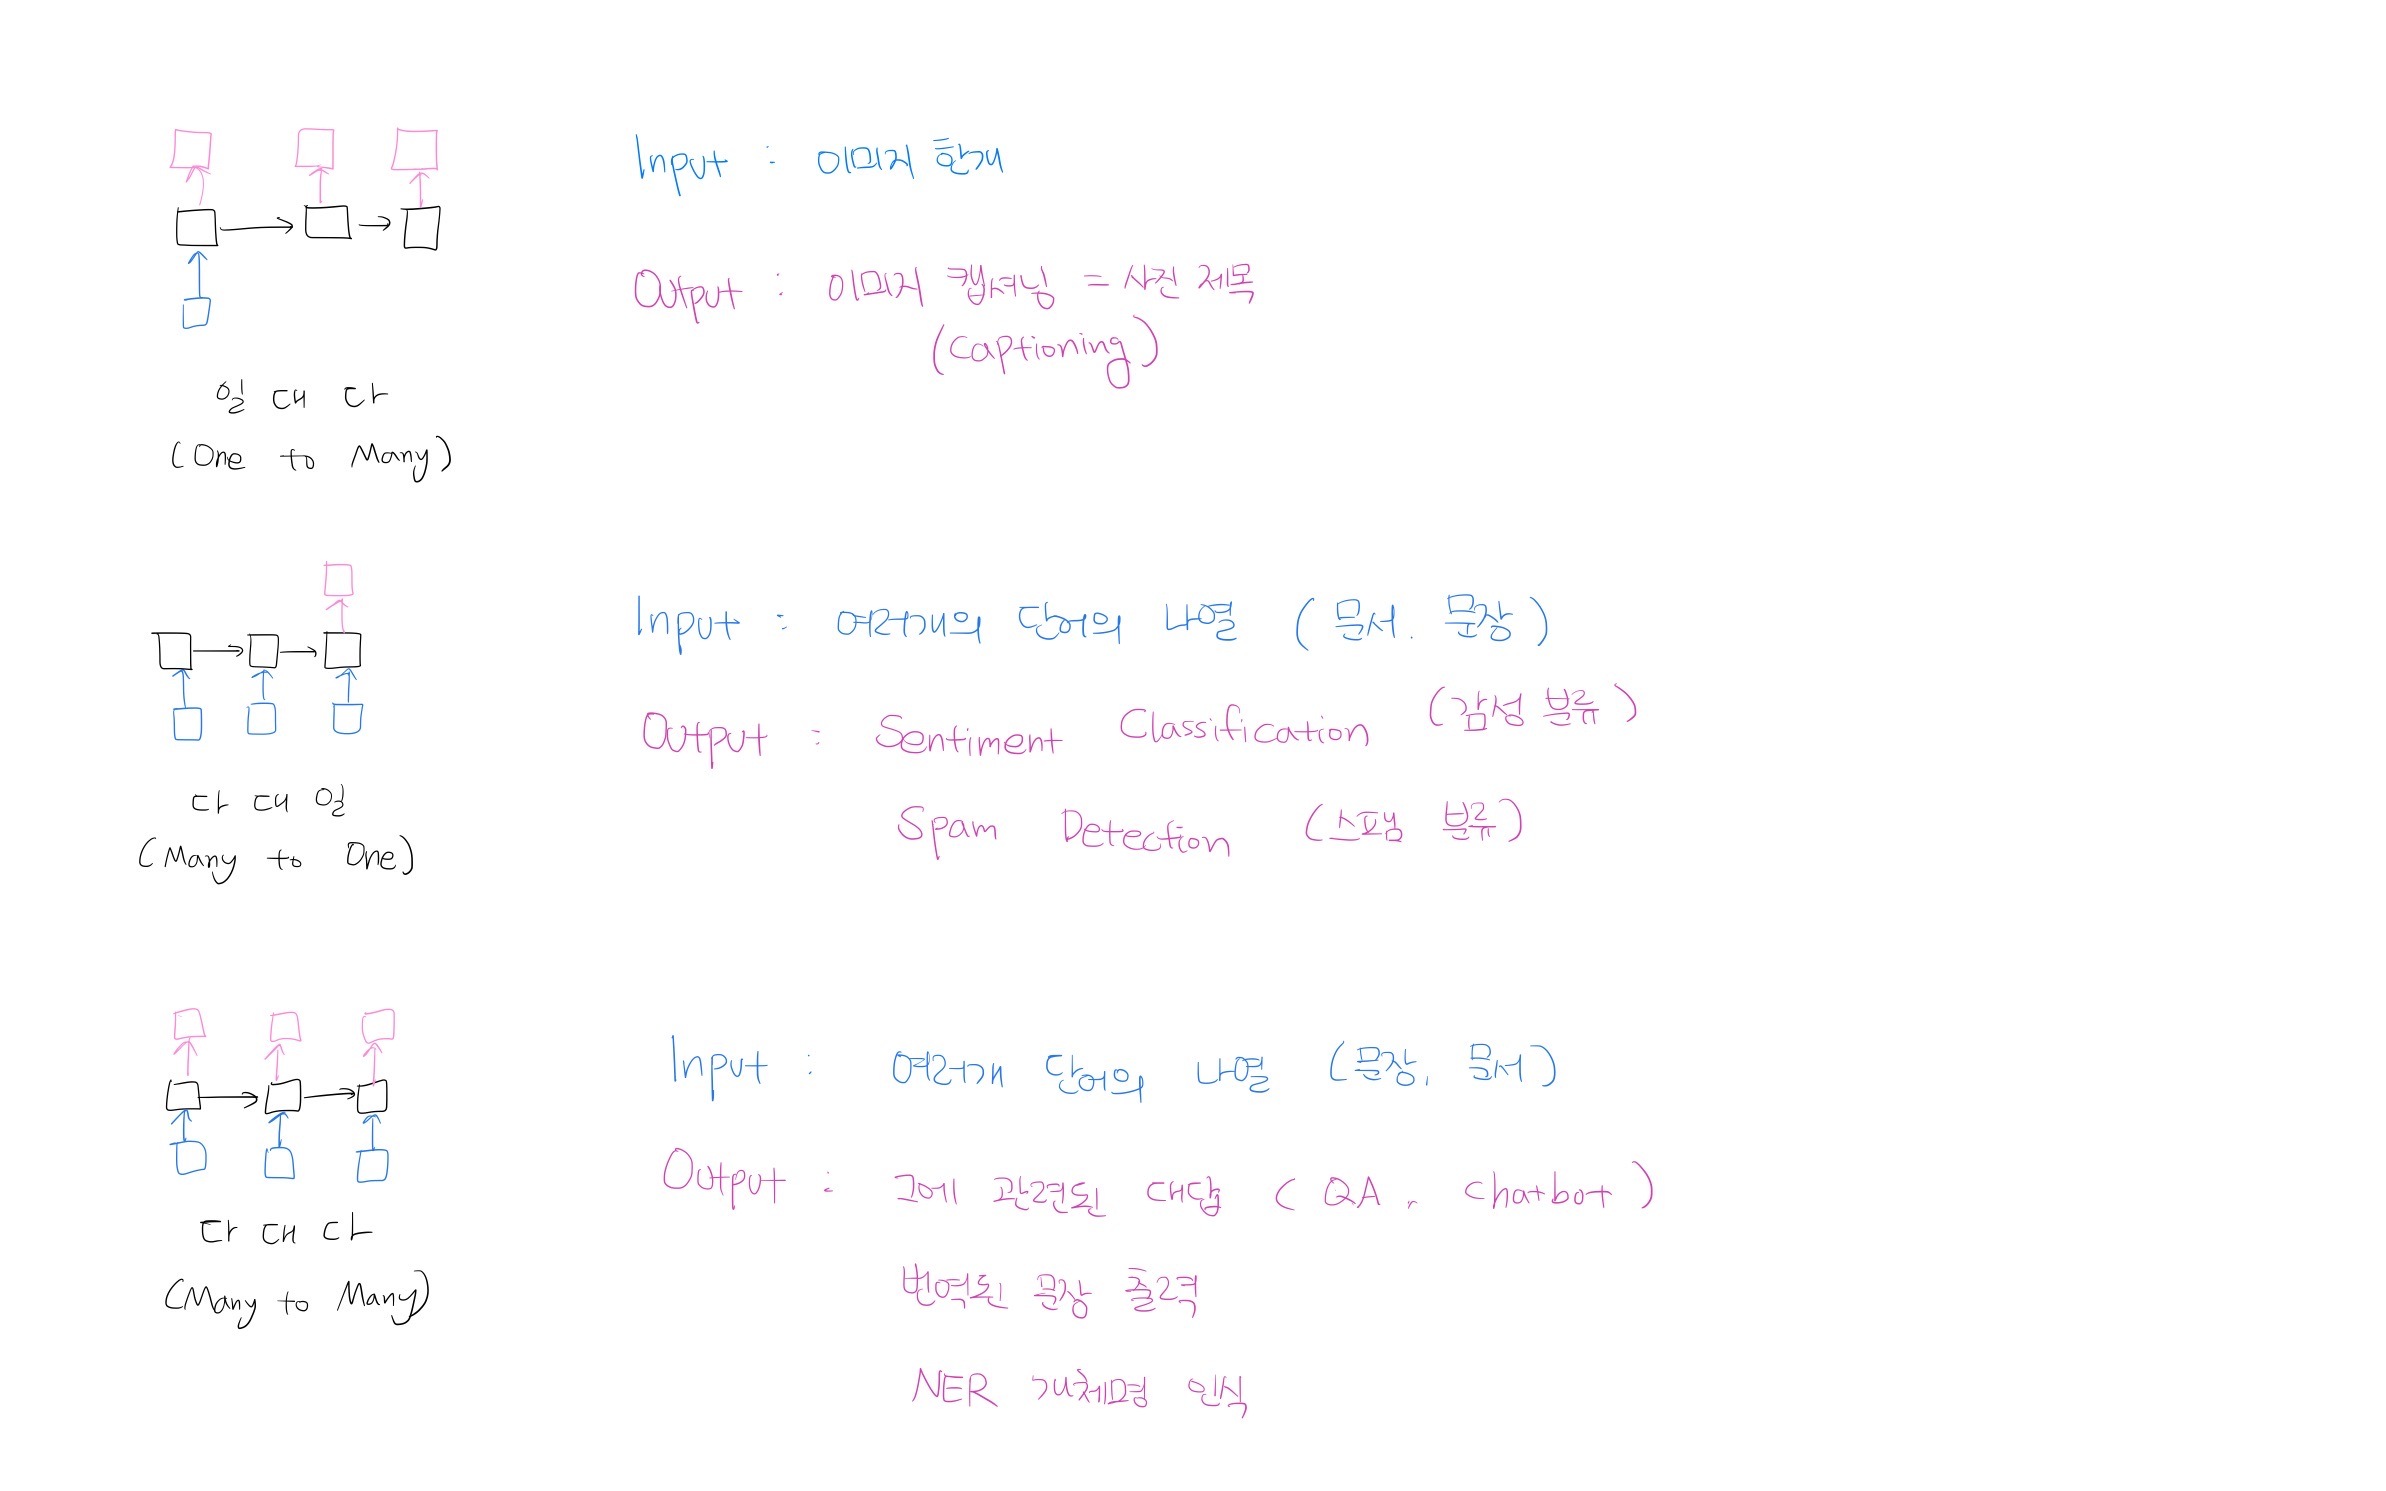 Input : 이미지 한개
Output : 이미지 캡셔닝 = 사진 제목
(Captioning)
일 대 다
(One to Many)
Input : 여러개의 단어의 나열 (문서. 문장)
Output : Sentiment Classification (감성 분류)
Spam Detection (스팸 분류)
다 대 일
(Many to One)
Input : 여러개 단어의 나열 (문장, 문서)
Output : 그에 관련된 대답 (QA, Chatbot)
번역된 문장 출력
NER 개체명 인식
다 대 다
(Many to Many)